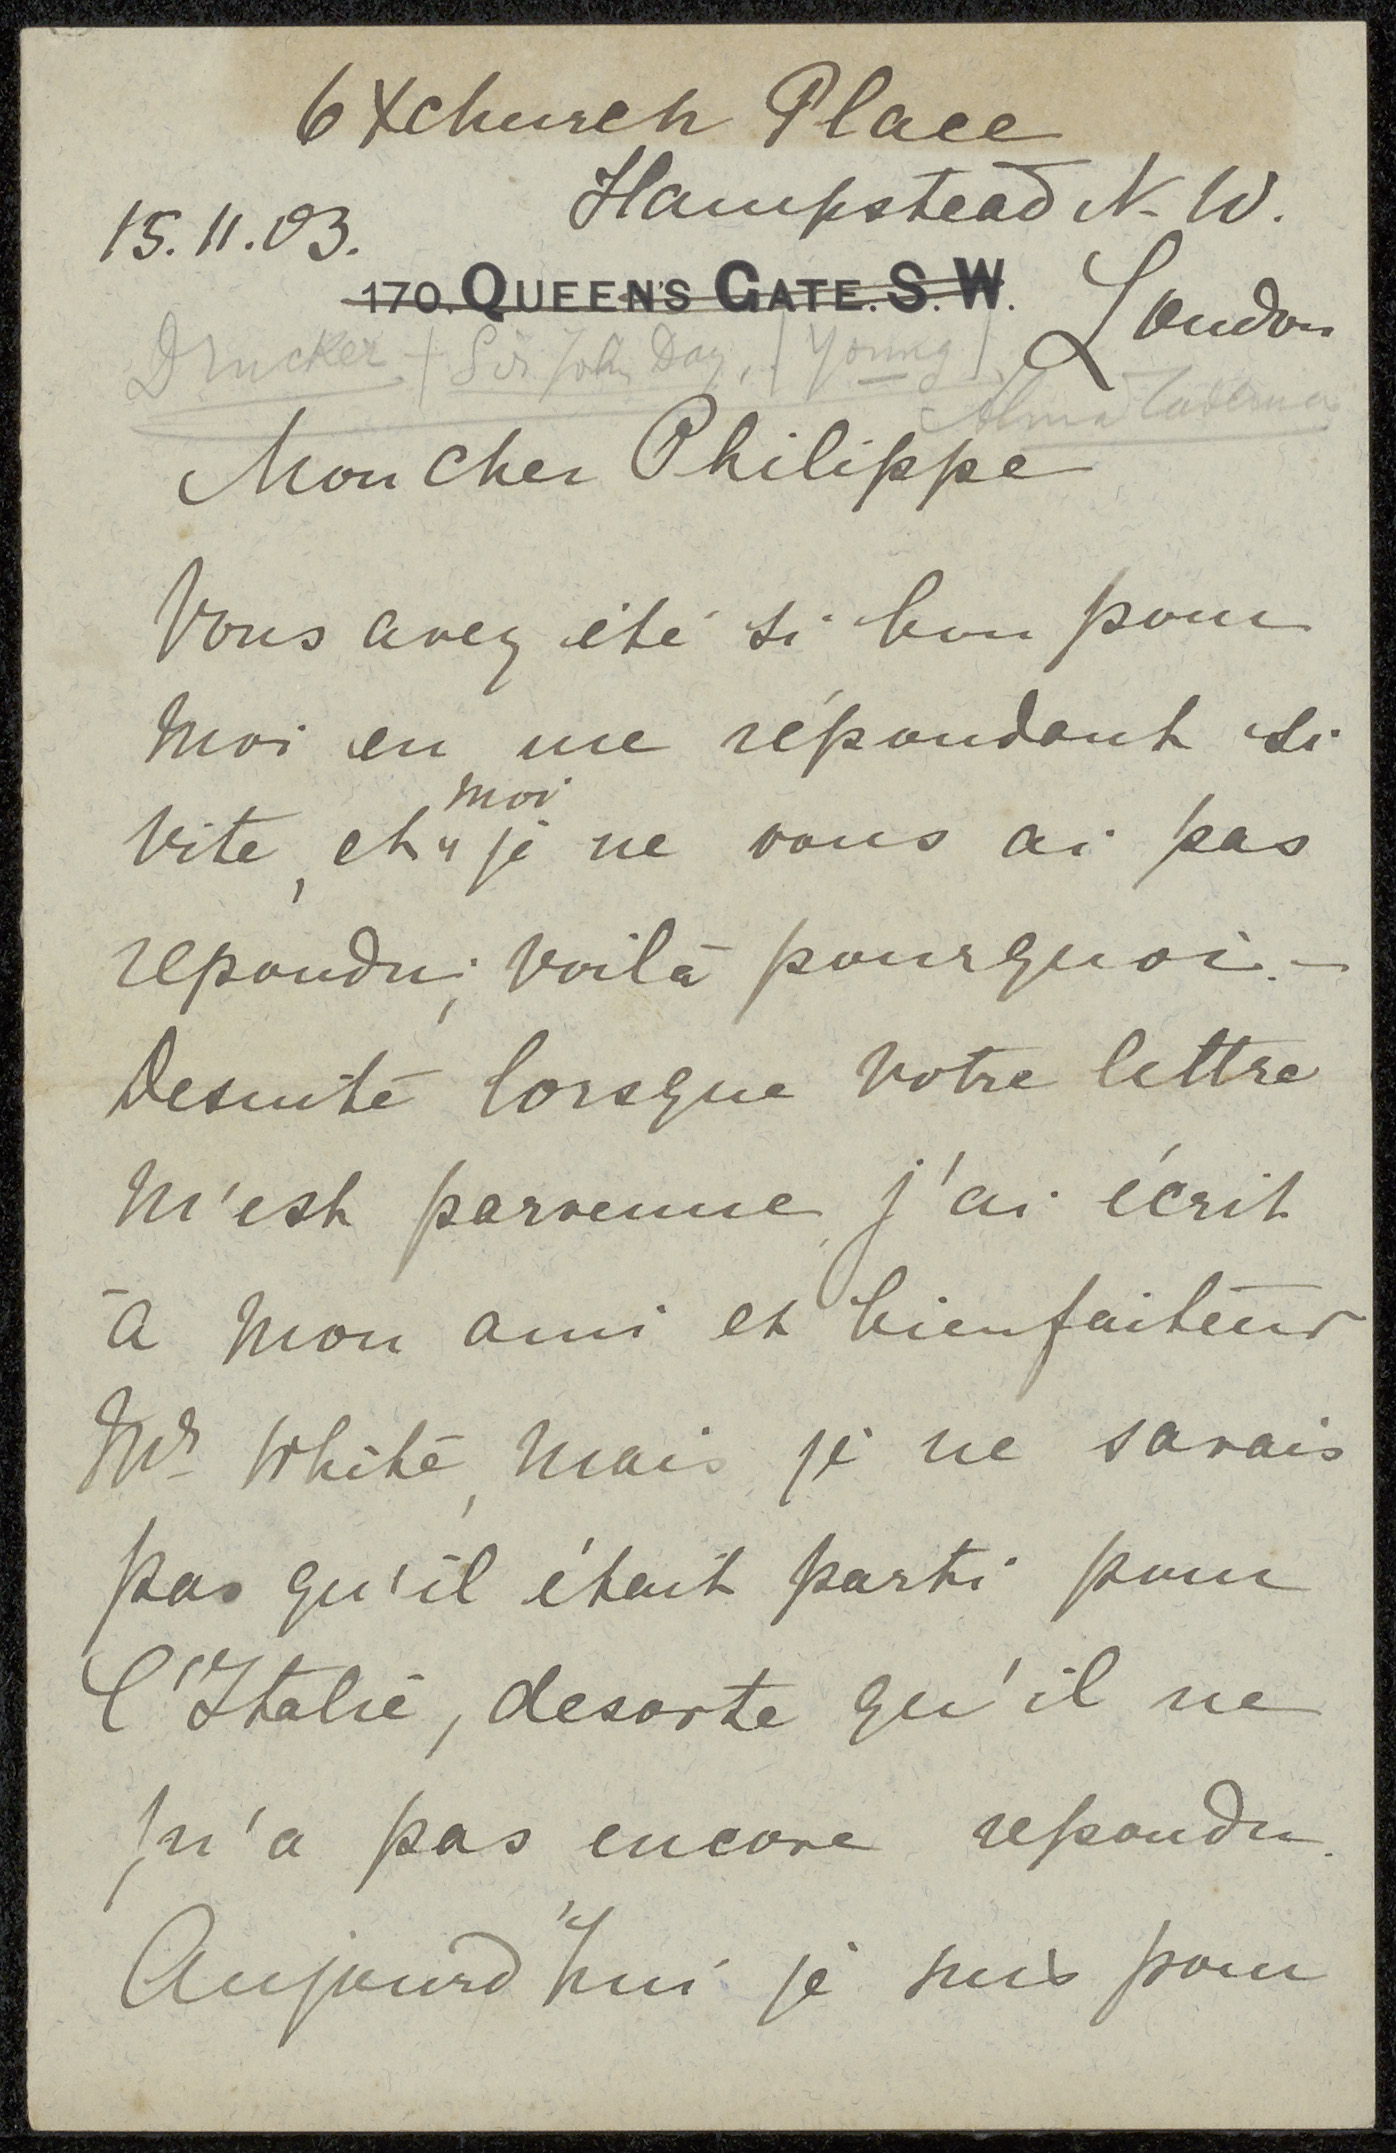 6 Xchurch Place
Hampstead N. W.
15.11.03.
170. QUEEN'S GATE. S. W.
London
Drucker + (Sir John Day, (Young)
Alma Tadema
Mon cher Philippe
Vous avez été si bon pour
moi en me répondant si
moi
vite, et " je ne vous ai pas
repondu; voilà pourquoi. —
Desuite lorsque votre lettre
m'est parvenue, j'ai écrit
à mon ami et bienfaiteur
Mr White, mais je ne savais
pas qu'il était parti pour
l'Italie, desorte qu'il ne
m'a pas encore repondu.
Aujourd'hui je suis pour